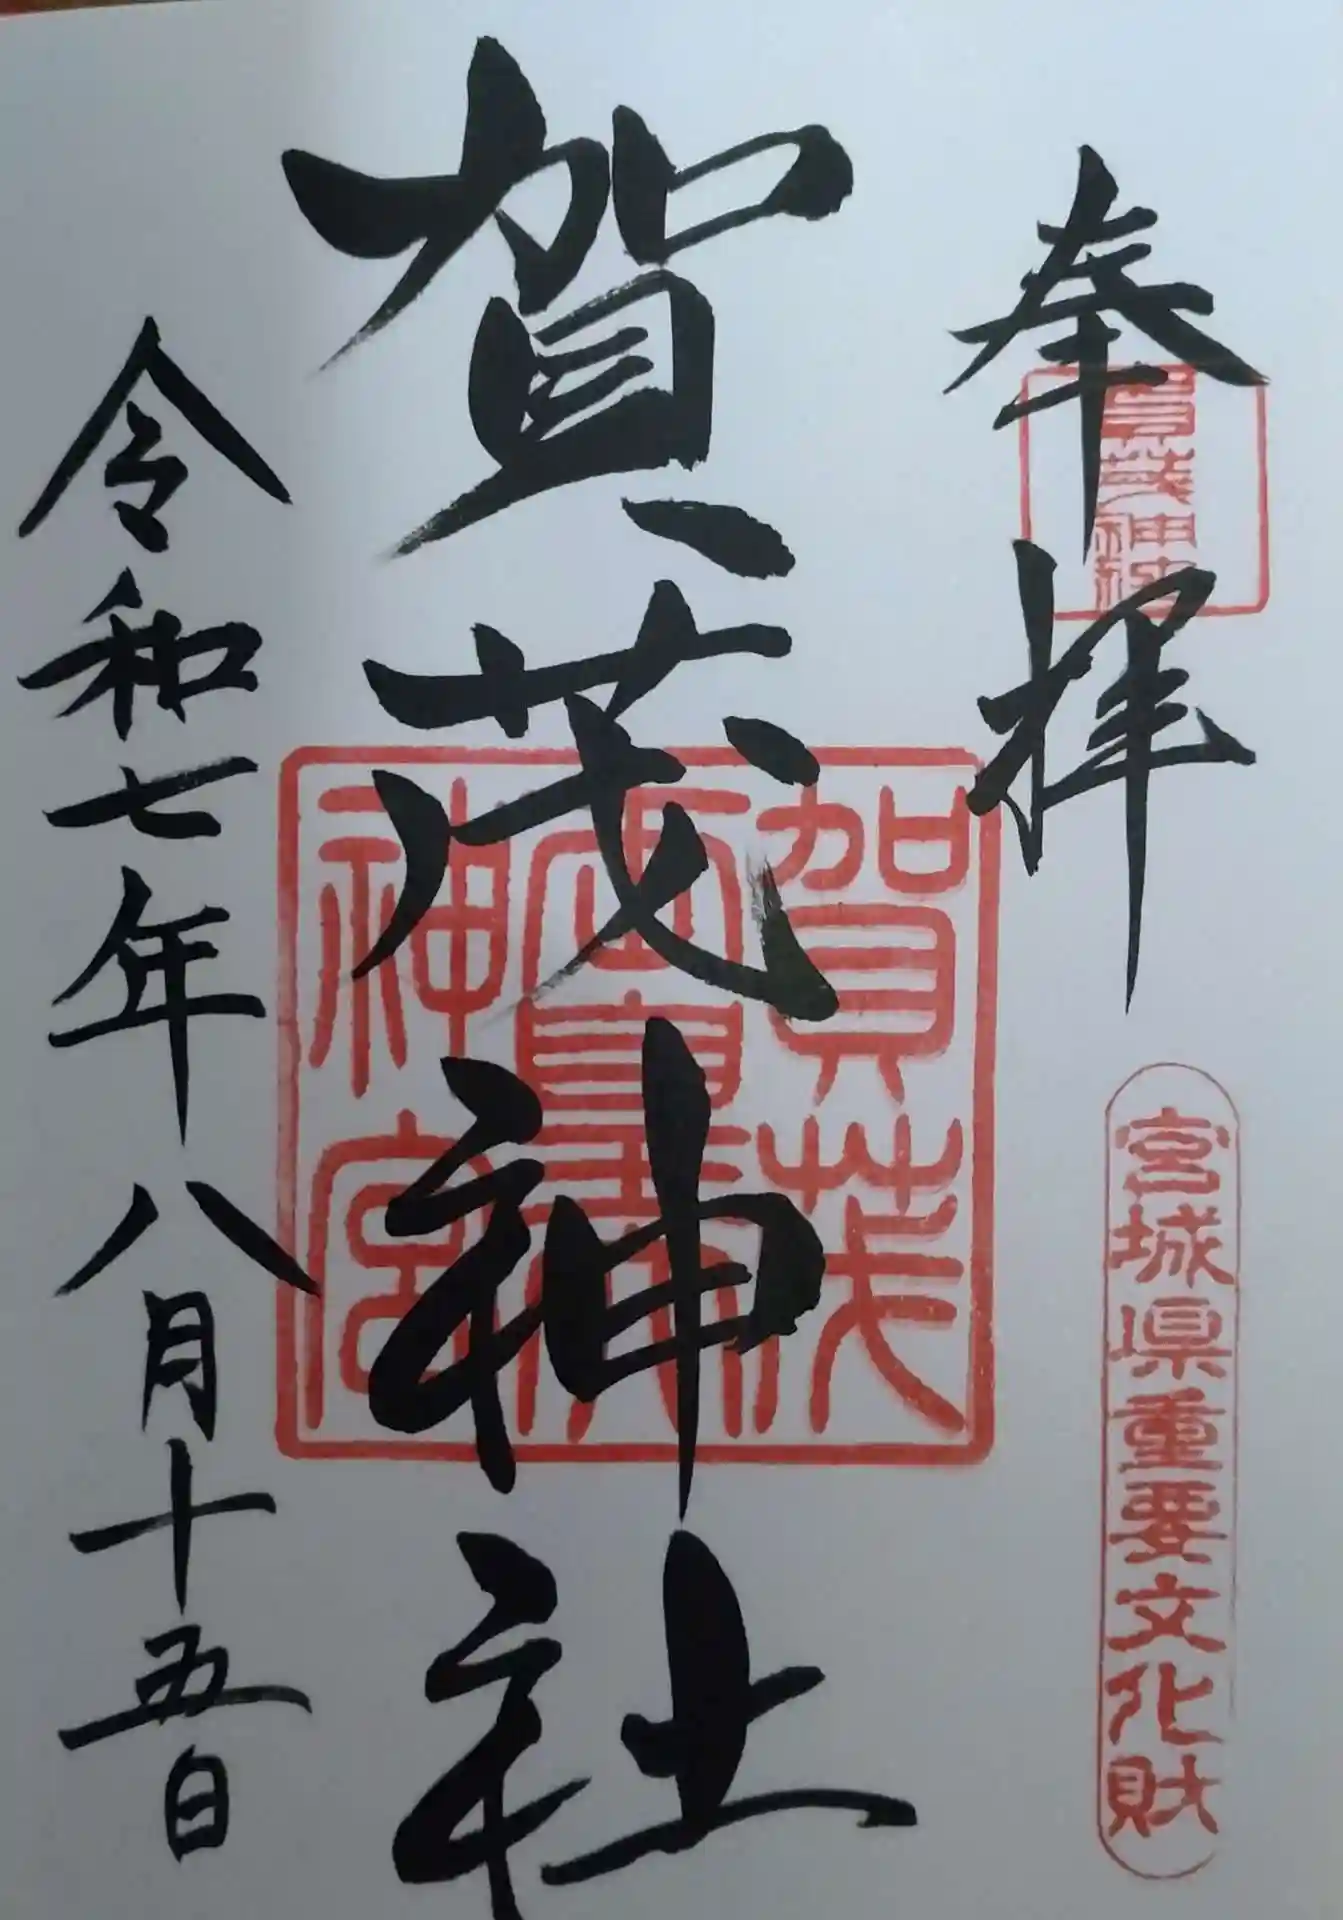 奉拝
賀茂神社
宮城県重要文化財
賀茂神社
令和七年八月十五日